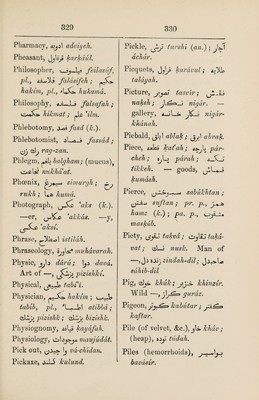 329
Pharmacy, ادویه adviyeh.
Pheasant, قرقاول ḳarḳâúl.
Philosopher, فیلسوف feílasúf,
pl., فلاسفه falásifeh; حکیم
hakím, pl., حکما ḥukamá.
Philosophy, فلسفه falsafah;
حکمت ḥikmat; علم 'ilm.
Phlebotomy, فصد fasd (k.).
Phlebotomist, فصاد fassád;
رگ زن rag-zan.
Phlegm, بلغم balgham; (mucus),
نخاعه nukhá'at.
Phœnix, سیمرغ símurgh; رخ
rukh; هما humá.
Photograph, عکس 'aks (k.).
—er, عکاس 'akkás. —y,
عکسی 'aksí.
Phrase, اصطلاح istiláh.
Phraseology, محاوره muhávarah.
Physic, دارو dárú; دوا davá.
Art of —, پزشکی pizishkí.
Physical, طبیعی tabí'í.
Physician, حکیم hakím; طبیب
tabíb, pl., اطبا atibbá;
پزشک pizishk; بزشک bizishk.
Physiognomy, قیافه ḳayáfah.
Physiology, موجودات manjúdát.
Pick out, وا چیدن vá-chídan.
Pickaxe, کلند kulund.
330
Pickle, ترشی turshí (an.); آچار
áchár.
Picquets, قراول ḳarával; طلایه
taláyah.
Picture, تصویر tasvír; نقش
naḳsh; نگار nigár. —
gallery, نگار خانه nigár-
khánah.
Piebald, ابلق ablaḳ; ابرق ubraḳ.
Piece, قطعه kaf'ah; پارچه pár-
cheh; پاره párah; تکه
tikkeh. — goods, قماش
ḳumásh.
Pierce, سنبختن sabúkhtan;
سفتن suftan; pr. p., همز
hamz (k.); pa. p., مثقوب
masḳúb.
Piety, تقوی taḳvá; تقاوت taḳá-
vat; نسک nusk. Man of
—, زنده دل zindah-dil; صاحبدل
sáhib-dil
Pig, خوک khúk; خنزیر khinzír.
Wild —, گراز guráz.
Pigeon, کبوتر kabútar; کفتر
kaftar.
Pile (of velvet, &c.), خاو kháv;
(heap), توده túdah.
Piles (hemorrhoids), بواسیر
bavásír.